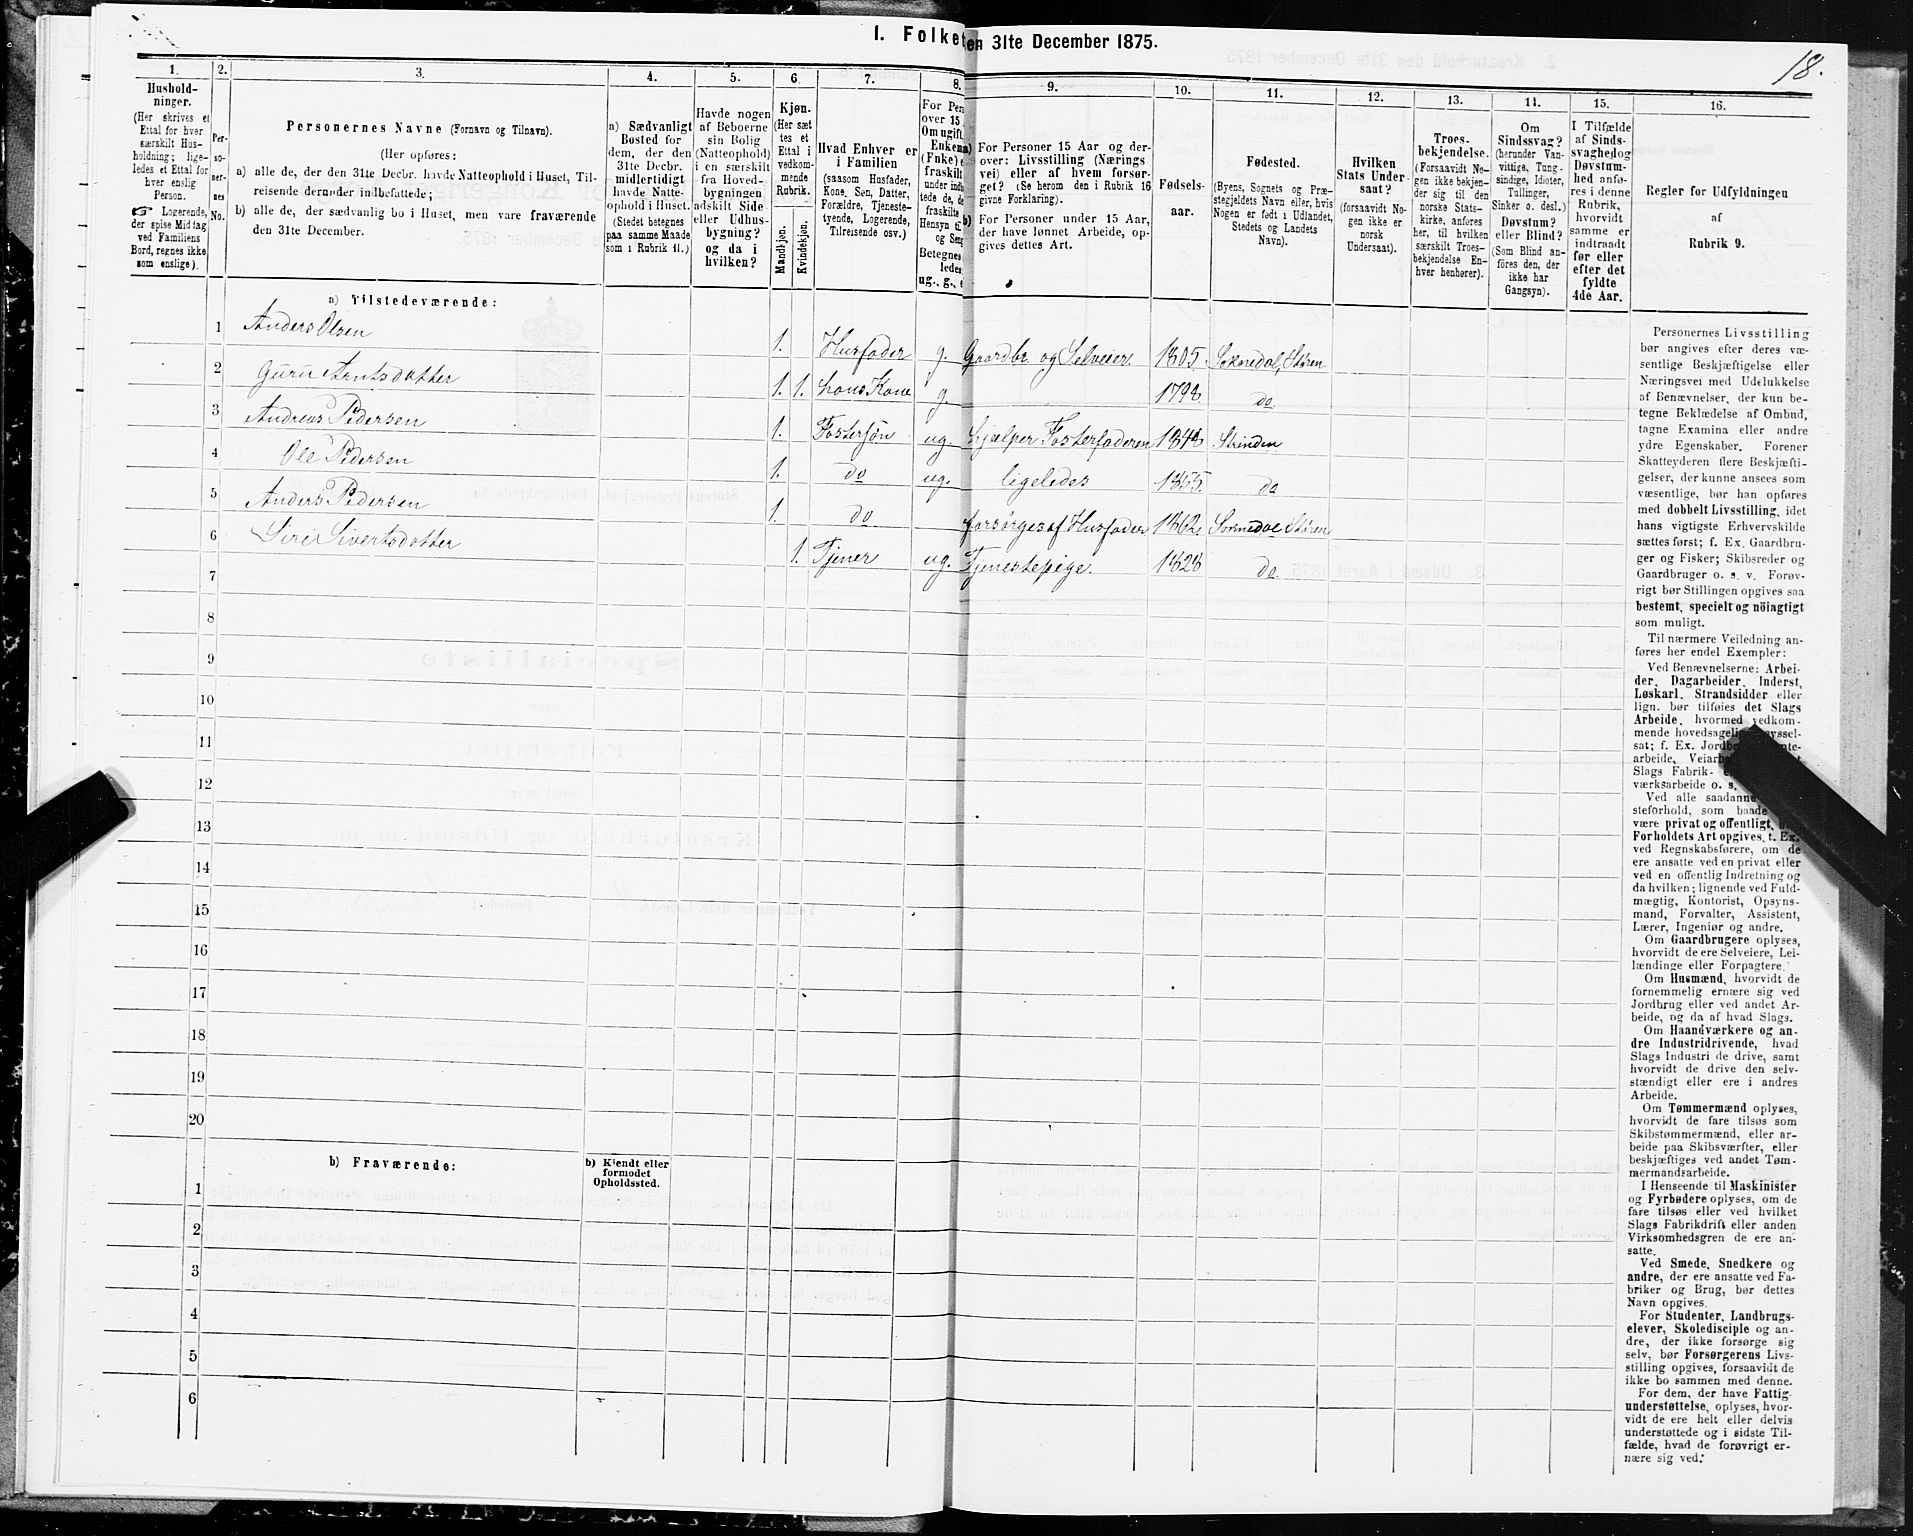 18.
I. Folket
en 31te December 1875.
1.
2.
3.
4.
5.
6.
7.
8.
9.
10.
11.
12.
13.
14.
15.
16.
Hushold-
ninger.
(Her skrives et
Ettal for hver
særskilt Hus-
holdning; lige-
ledes et Ettal for
hver enslig
Person.
☞ Logerende,
der spise Middag
ved Familiens
Bord, regnes ikke
som enslige).
Per-
so-
ner-
nes
No.
Personernes Navne (Fornavn og Tilnavn).
(Her opføres:
a) alle de, der den 31te Decbr. havde Natteophold i Huset, Til-
reisende derunder indbefattede;
b) alle de, der sædvanlig bo i Huset, men vare fraværende
den 31te December.
a) Sædvanligt
Bosted for
dem, der den
31te Decbr.
midlertidigt
havde Natte-
ophold i Huset.
(Stedet betegnes
paa samme Maade
som i Rubrik 11.)
Havde nogen
af Beboerne
sin Bolig
(Natteophold)
i en særskilt
fra Hoved-
bygningen
adskilt Side-
eller Udhus-
bygning?
og da i
hvilken?
Kjøn.
(Her sæt
tes et
Ettal i
vedkom-
mende
Rubrik.
Mandkjøn.
Kvindekjøn.
Hvad Enhver er
i Familien
(saasom Husfader,
Kone, Søn, Datter,
Forældre, Tjeneste-
tyende, Logerende,
Tilreisende osv.)
For Per
over 15
Om ugift,
Enkem
(Fnke) e
fraskilt
under indb
tede de, d
fraskilte
Hensyn til
og Seng
Betegnes
ledes
ug., g., e
a) For Personer 15 Aar og der-
over: Livsstilling (Nærings
vei) eller af hvem forsør-
get? (Se herom den i Rubrik 16
givne Forklaring).
b) For Personer under 15 Aar,
der have lønnet Arbeide, op-
gives dettes Art.
Fødsels-
aar.
Fødested.
(Byens, Sognets og Præ-
stegjeldets Navn eller, hvis
Nogen er født i Udlandet,
Stedets og Landets
Navn).
Hvilken
Stats Under-
saat?
(forsaavidt No-
gen ikke er
norsk
Undersaat).
Troes-
bekjendelse.
(Forsaavidt No-
gen ikke bekjen-
der sig til den
norske Stats-
kirke, anføres
her, til hvilken
særskilt Troes-
bekjendelse En-
hver henhører).
Om
Sindssvag?
(herunder Van-
vittige, Tung-
sindige, Idioter,
Tullinger,
Sinker o. desl.)
Døvstum?
eller Blind?
(Som Blind an-
føres den, der
ikke har
Gangsyn).
I Tilfælde
af Sinds-
svaghed og
Døvstum-
hed anfø-
res i denne
Rubrik,
hvorvidt
samme er
indtraadt
før eller
efter det
fyldte
4de Aar.
Regler for Udfyldningen
af
Rubrik 9.
a) Tilstedeværende:
1 Anders Olsen 1. Husfader g. Gaardbr. og Selveier. 1805. Soknedal, Støren
2 Guru Arntsdatter 1. 1. hans Kone g. 1798. do
3 Andreas Pedersen 1. Fostersøn ug. hjælper Fosterfaderen 1848 Strinden
4 Ole Pedersen 1. do ug. ligeledes 1855. do
5 Anders Pedersen 1. do forsørges af Husfader 1862. Soknedal Støren
6 Siri Sivertsdatter 1. Tjener ug. Tjenestepige. 1828 do.
7
8
9
10
11
12
13
14
15
16
17
18
19
20
b) Fraværende:
b) Kjendt eller
formodet
Opholdssted.
1
2
3
4
5
6
Personernes Livsstilling
bør angives efter deres væ-
sentlige Beskjæftigelse eller
Næringsvei med Udelukkelse
af Benævnelser, der kun be-
tegne Beklædelse af Ombud,
tagne Examina eller andre
ydre Egenskaber. Forener
Skatteyderen flere Beskjæfti-
gelser, der kunne ansees som
væsentlige, bør han opføres
med dobbelt Livsstilling, idet
hans vigtigste Erhvervskilde
sættes først; f. Ex. Gaardbru-
ger og Fisker; Skibsreder og
Gaardbruger o. s. v. Forøv-
rigt bør Stillingen opgives saa
bestemt, specielt og nöiagtigt
som muligt.
Til nærmere Veiledning an-
føres her endel Exempler:
Ved Benævnelserne: Arbei-
der, Dagarbeider, Inderst,
Løskarl, Strandsidder eller
lign. bør tilføies det Slags
Arbeide, hvormed vedkom-
mende hovedsagelig
sat; f. Ex.
arbeide,
Slags Fabrik-
værksarbeide o. s.
Ved alle saadanne
steforhold, som baade
være privat og offentligt,
Forholdets Art opgives, t. Ex.
ved Regnskabsførere, om de
ere ansatte ved en privat eller
ved en offentlig Indretning og
da hvilken; lignende ved Fuld-
mægtig, Kontorist, Opsyns-
mand, Forvalter, Assistent,
Lærer, Ingeniør og andre.
Om Gaardbrugere oplyses,
hvorvidt de ere Selveiere, Lei-
lændinge eller Forpagtere.
Om Husmænd, hvorvidt de
fornemmelig ernære sig ved
Jordbrug eller ved andet Ar-
beide, og da af hvad Slags.
Om Haandværkere og an-
dre Industridrivende, hvad
Slags Industri de drive, samt
hvorvidt de drive den selv-
stændigt eller ere i andres
Arbeide.
Om Tømmermænd oplyses,
hvorvidt de fare tilsøs som
Skibstømmermænd, eller ar-
beide paa Skibsværfter, eller
beskjæftiges ved andet Tøm-
mermandsarbeide.
I Henseende til Maskinister
og Fyrbødere oplyses, om de
fare tilsøs eller ved hvilket
Slags Fabrikdrift eller anden
Virksomhedsgren de ere an-
satte.
Ved Smede, Snedkere og
andre, der ere ansatte ved Fa-
briker og Brug, bør dettes
Navn opgives.
For Studenter, Landbrugs-
elever, Skoledisciple og an-
dre, der ikke forsørge sig
selv, bør Forsørgerens Livs-
stilling opgives, forsaavidt de
ikke bo sammen med denne.
For dem, der have Fattig-
understøttelse, oplyses, hvor-
vidt de ere helt eller delvis
understøttede og i sidste Til-
fælde, hvad de forøvrigt er-
nære sig ved.